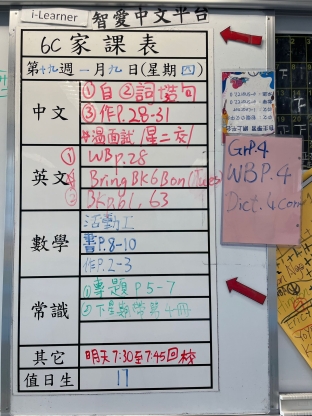 i-Learner 智愛中文平台
6C 家課表
第十九週 一月九日(星期四)
中文
①自②詞造句
③作P.28-31
英文
① WBp.28
Bring BK6B on (Tues)
BKp.61, 63
數學
活動工
書P.8-10
作P.2-3
常識
①專題 P5-7
②下星期帶第十冊
其它
明天7:30至7:45回校
值日生
17
GrP.4
WBP.4
Dict.4 Corr